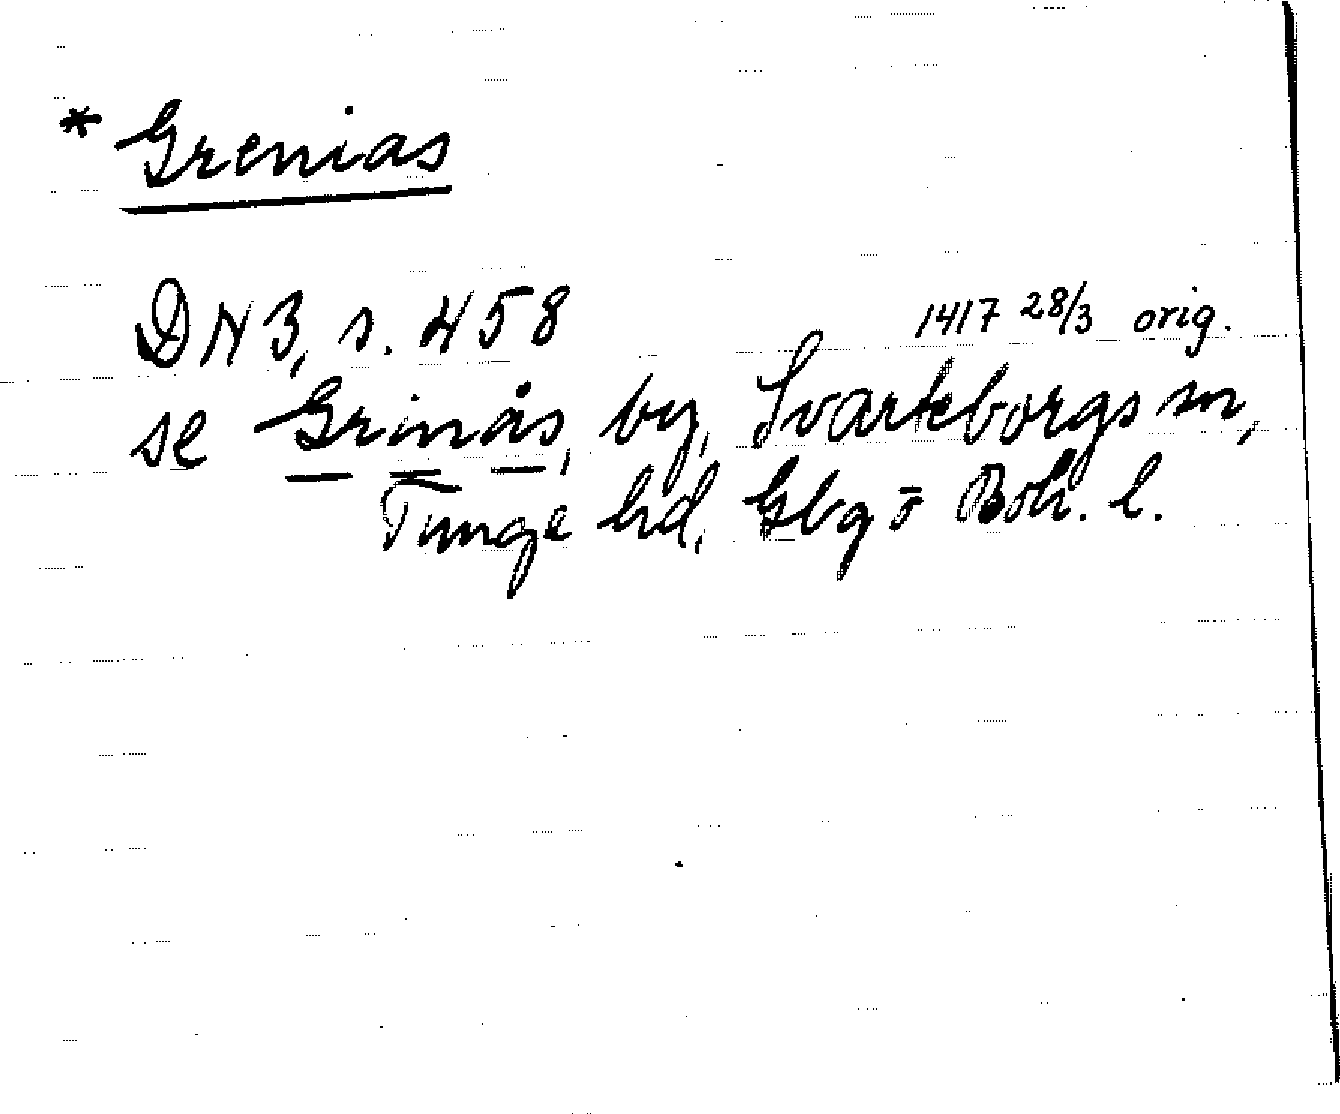 * Grenias
DN 3, s. 458 1417 28/3 orig.
se Grinås, by, Svarteborgs sn,
Tunge hd, Gbg o Boh. l.